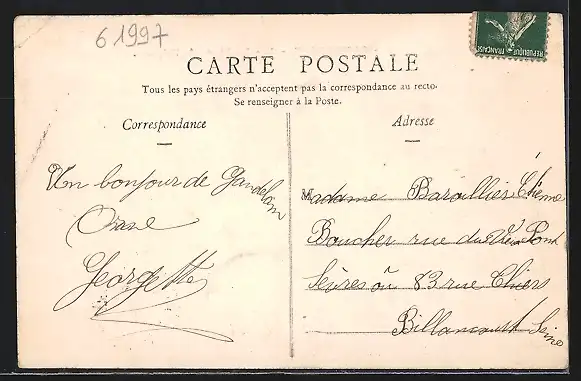 6 1997
RÉPUBLIQUE FRANÇAISE
CARTE POSTALE
Tous les pays étrangers n'acceptent pas la correspondance au recto.
Se renseigner à la Poste.
Correspondance
Adresse
Un bonjour de Gandelain
Georgette
Madame Barallier Etienne
Boucher rue du Vieux Pont
Sèvres ou 83 rue Thiers
Billancourt Seine